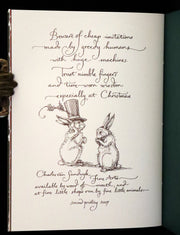 Beware of cheap imitations
made by greedy humans
with huge machines.
Trust nimble fingers
and time-worn wisdom
especially at Christmas.
Charles van Sandwyk Fine Arts
available by word of mouth, and
at fine little shops run by fine little animals
second printing 2009